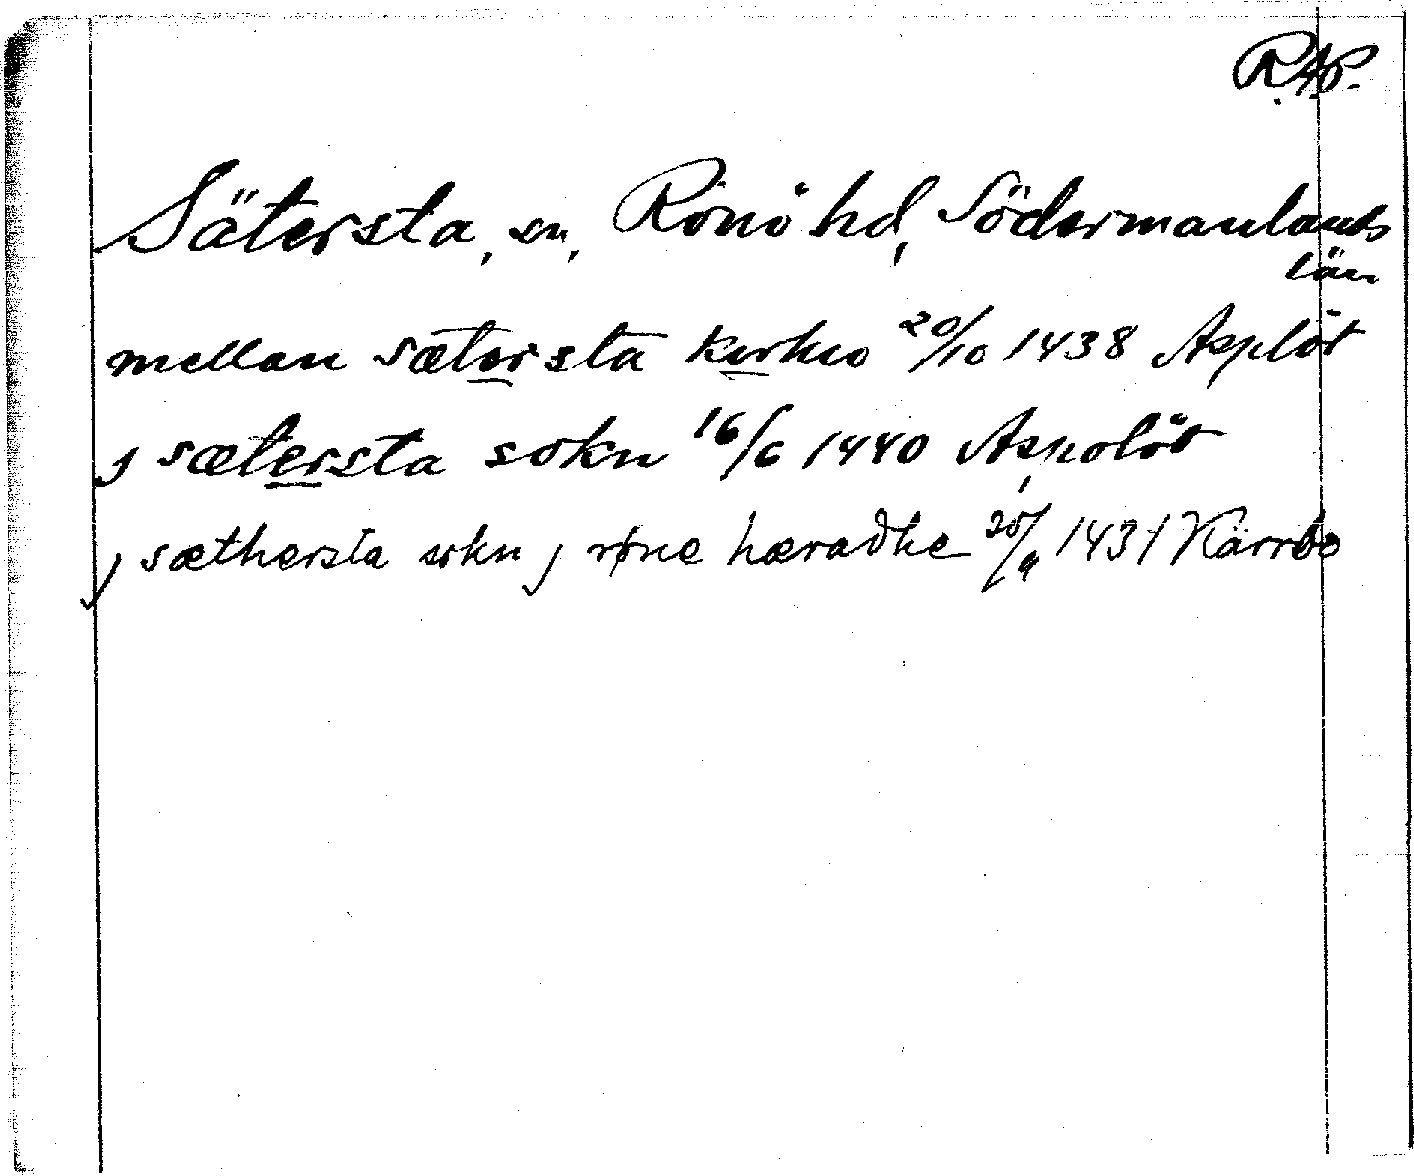 R.A.P.
Sätersta, sn, Rönö hd, Södermanlands
län
mellan sætersta kirkio 20/10 1438 Asplöt
j sætersta sokn 16/6 1440 Aspolöt
j sæthersta sokn j røne hæradhe 1431 Kärrbo